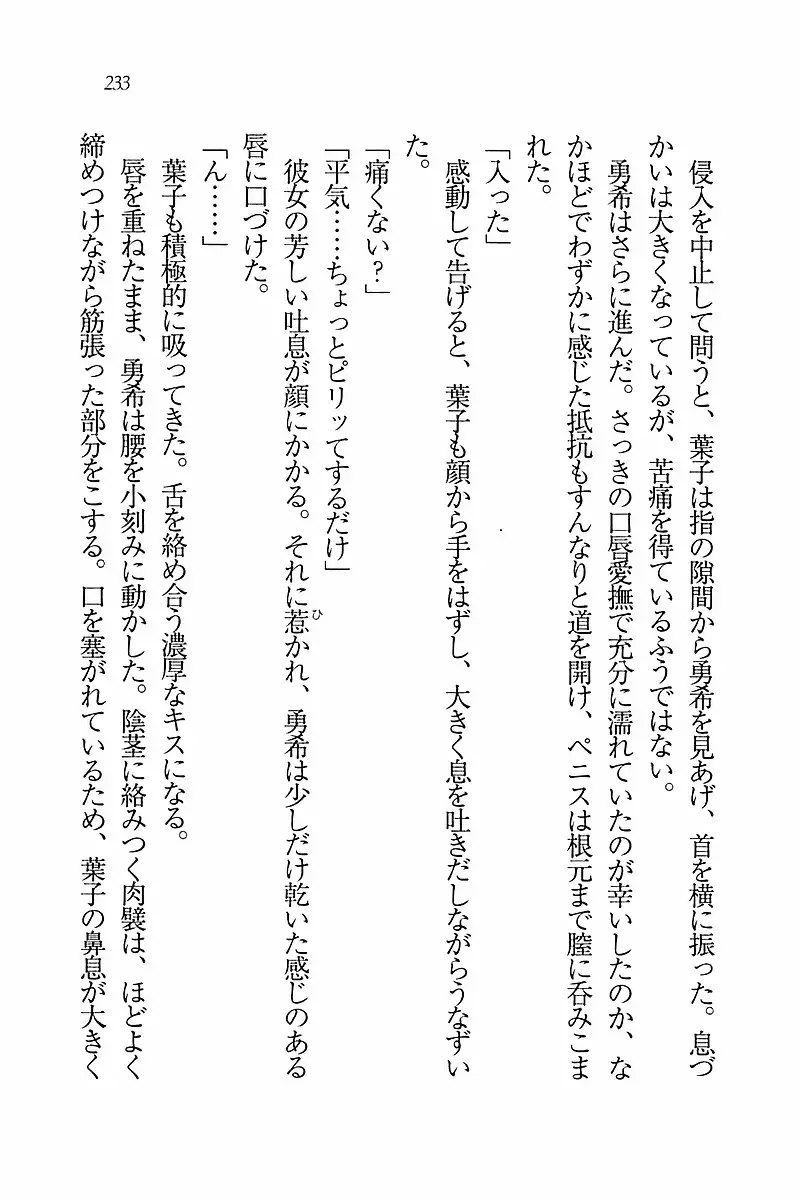 233
侵入を中止して問うと、葉子は指の隙間から勇希を見あげ、首を横に振った。息づ
かいは大きくなっているが、苦痛を得ているふうではない。
勇希はさらに進んだ。さっきの口唇愛撫で充分に濡れていたのが幸いしたのか、な
かほどでわずかに感じた抵抗もすんなりと道を開け、ペニスは根元まで膣に呑みこま
れた。
「入った」
感動して告げると、葉子も顔から手をはずし、大きく息を吐きだしながらうなずい
た。
「痛くない？」
「平気……ちょっとピリッてするだけ」
彼女の芳しい吐息が顔にかかる。それに惹かれ、勇希は少しだけ乾いた感じのある
ひ
唇に口づけた。
「ん……」
葉子も積極的に吸ってきた。舌を絡め合う濃厚なキスになる。
唇を重ねたまま、勇希は腰を小刻みに動かした。陰茎に絡みつく肉襞は、ほどよく
締めつけながら筋張った部分をこする。口を塞がれているため、葉子の鼻息が大きく